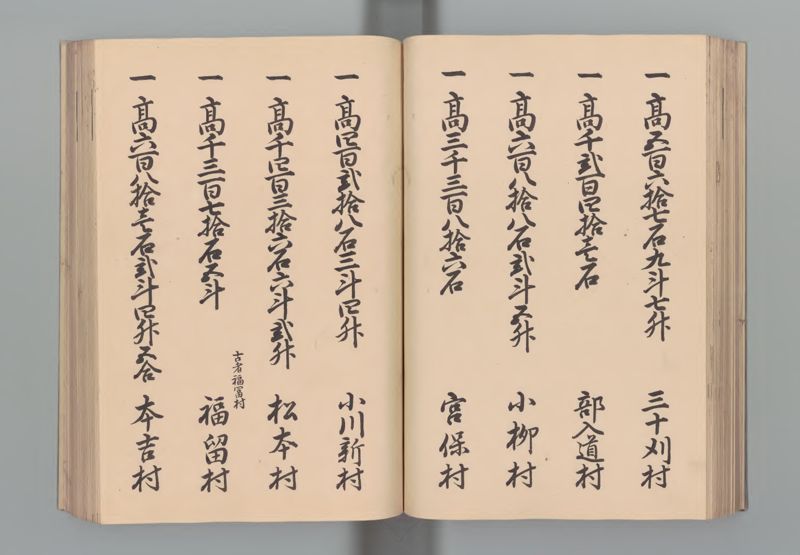 一 高五百六拾七石九斗七升 三十刈村
一 高千弐百四拾壱石 部入道村
一 高六百八拾八石弐斗五升 小柳村
一 高三千三百八拾六石 宮保村
一 高四百弐拾八石三斗四升 小川新村
一 高千四百三拾六石六斗弐升 松本村
古者福富村
一 高千三百七拾石五斗 福留村
一 高六百八拾壱石弐斗四升五合 本吉村